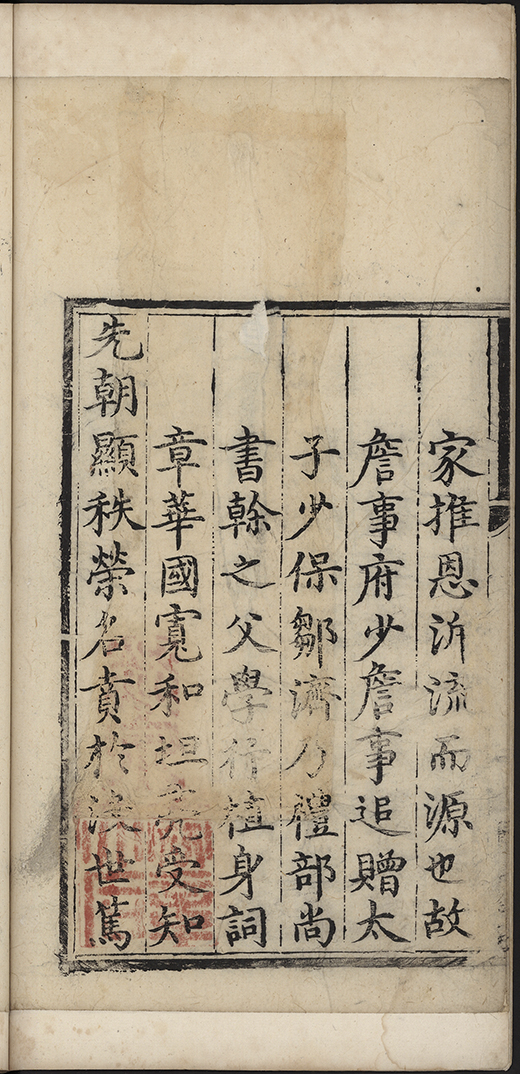 家推恩泝流而源也故
詹事府少詹事追贈太
子少保鄒濟乃禮部尚
書幹之父學行植身詞
章華國寬和坦亮受知
先朝顯秩榮名賁於後世篤